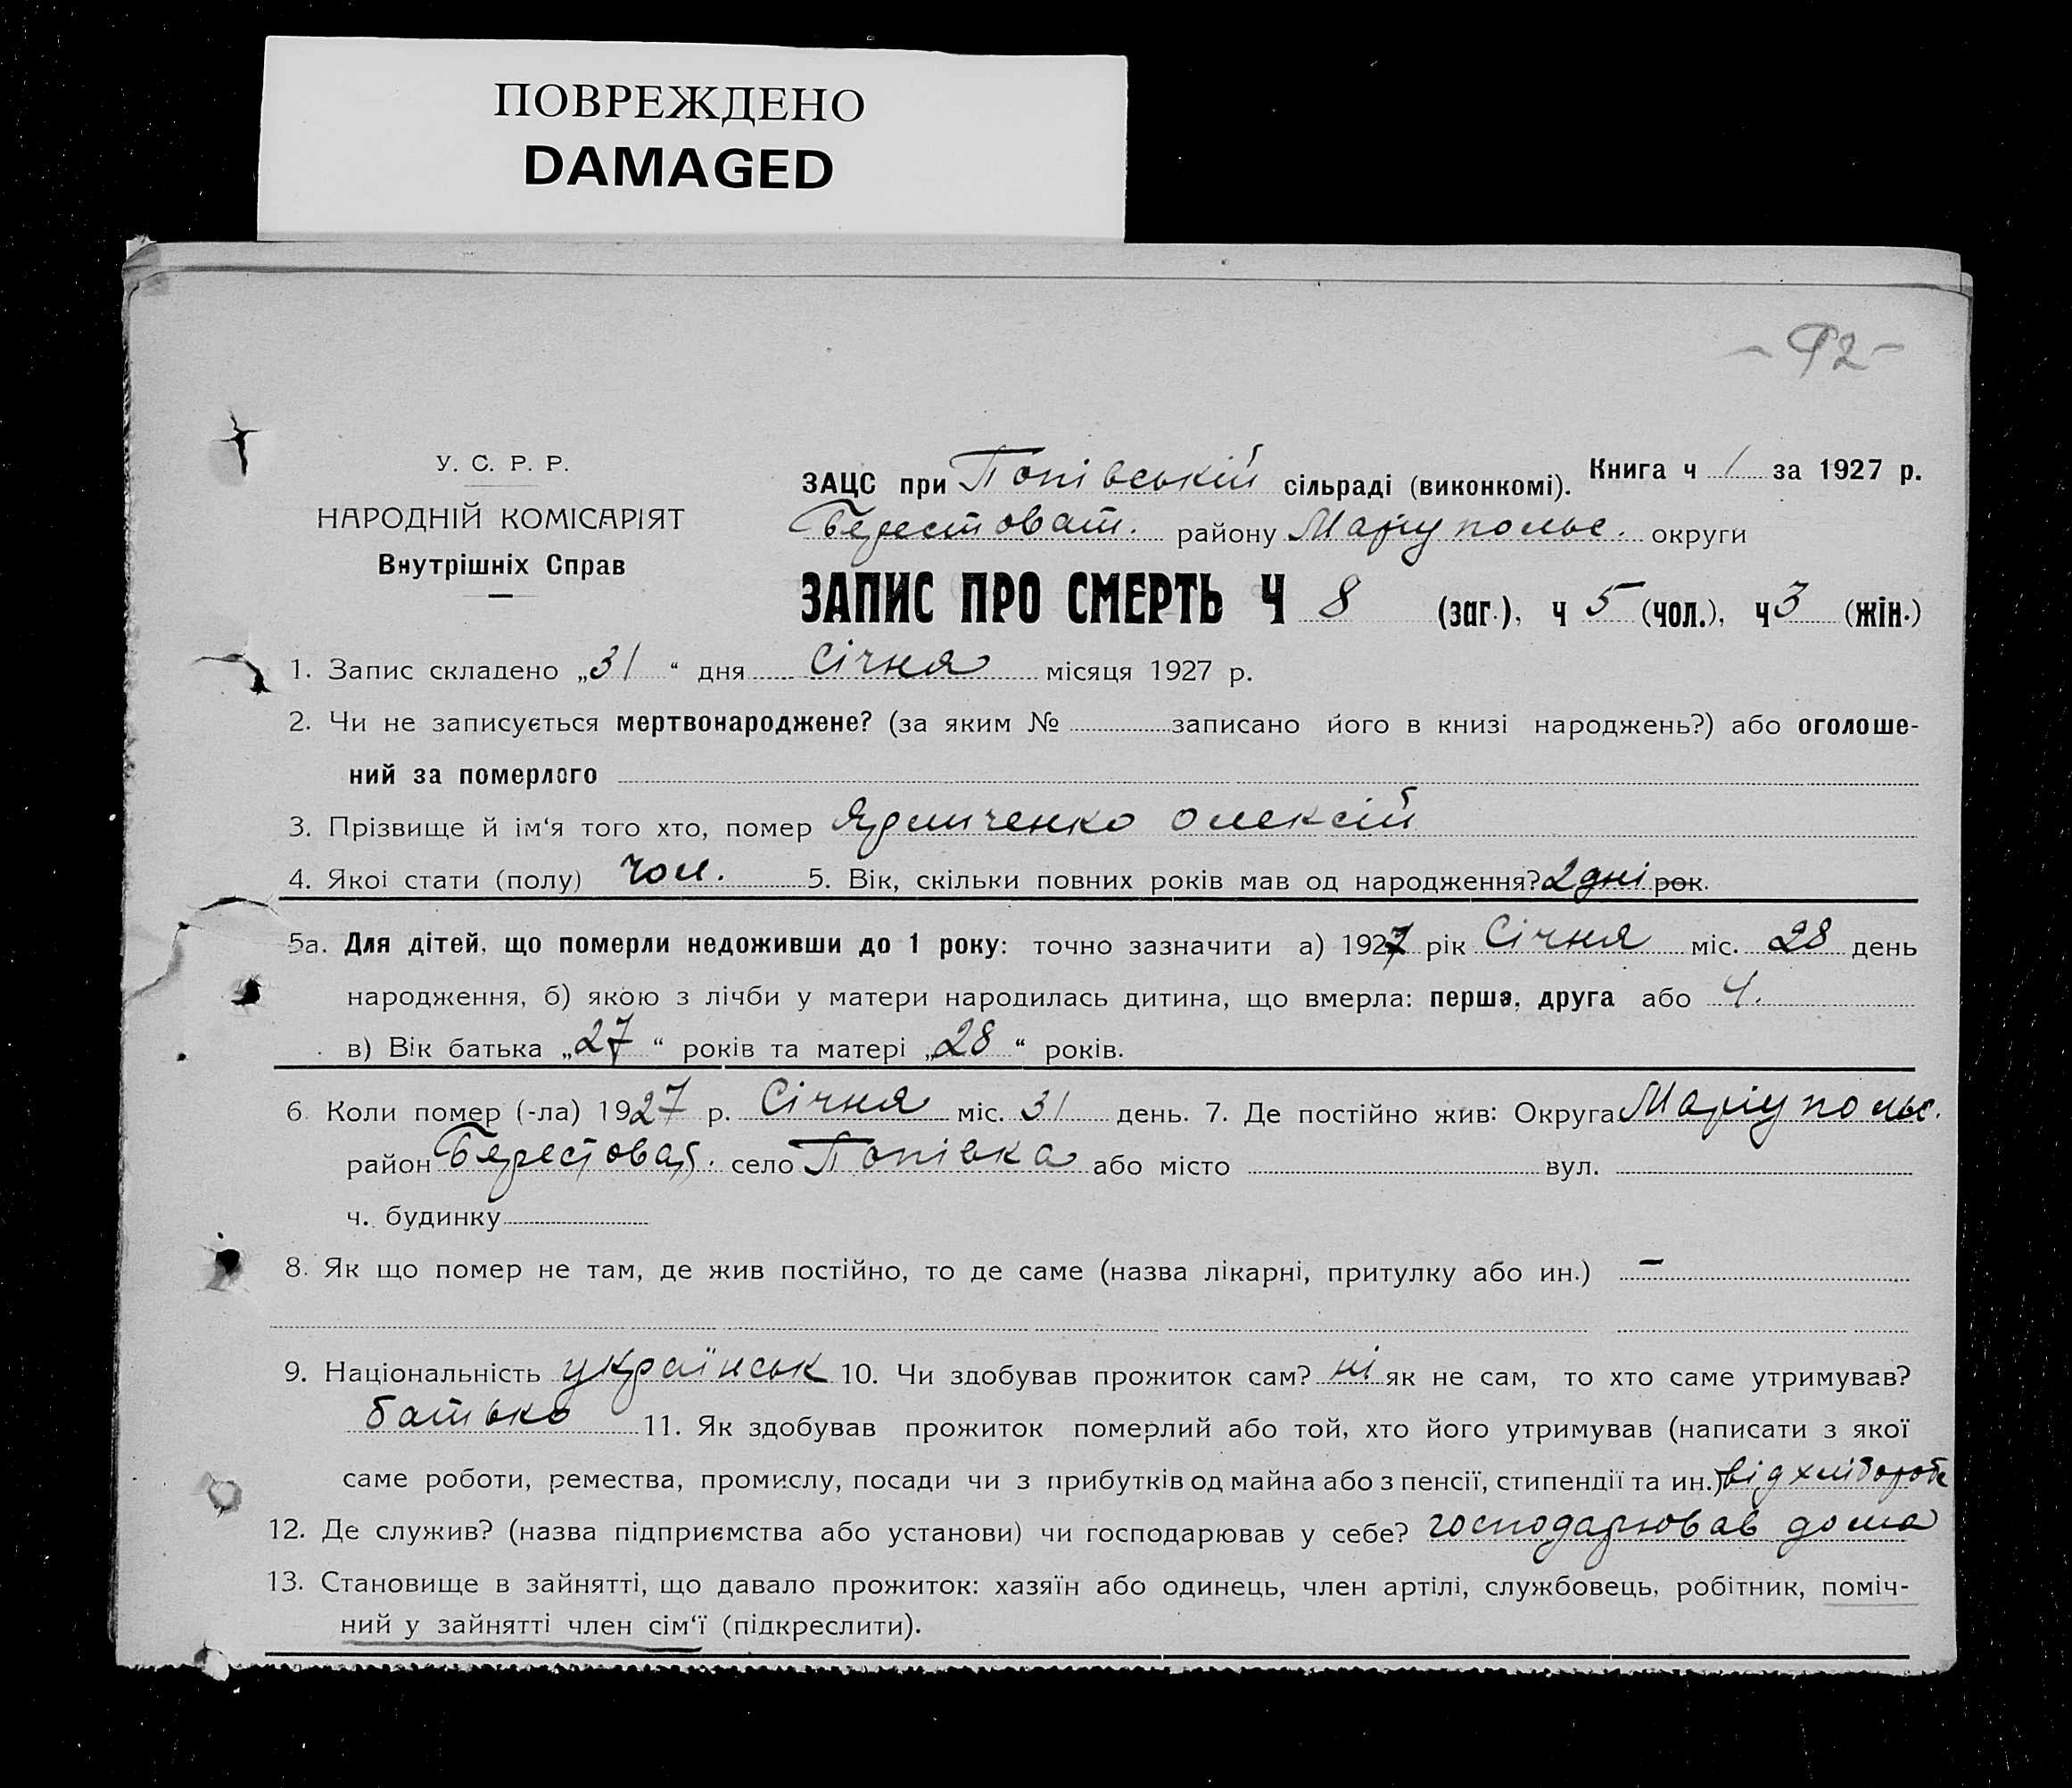 ПОВРЕЖДЕНО
DAMAGED
- 92 -
У. С. Р. Р.
НАРОДНІЙ КОМІСАРІЯТ
Внутрішніх Справ
ЗАЦС при Попівській сільраді (виконкомі). Книга ч 1 за 1927 р.
Берестоват. району Маріупольс. округи
ЗАПИС ПРО СМЕРТЬ Ч 8 (заг.), ч 5 (чол.), ч 3 (жін.)
1. Запис складено „31“ дня Січня місяця 1927 р.
2. Чи не записується мертвонароджене? (за яким № записано його в книзі народжень?) або оголоше-
ний за померлого
3. Прізвище й ім‘я того хто, помер Олексій
4. Якої стати (полу) чол. 5. Вік, скільки повних років мав од народження? 2 дні рок.
5а. Для дітей, що померли недоживши до 1 року: точно зазначити а) 1927 рік Січня міс. 28 день
народження, б) якою з лічби у матери народилась дитина, що вмерла: перша, друга або 4.
в) Вік батька „27“ років та матері „28“ років.
6. Коли помер (-ла) 1927 р. Січня міс. 31 день. 7. Де постійно жив: Округа Маріупольс.
район Берестоват. село Попівка або місто вул.
ч. будинку
8. Як що помер не там, де жив постійно, то де саме (назва лікарні, притулку або ин.) –
9. Національність українськ 10. Чи здобував прожиток сам? ні як не сам, то хто саме утримував?
батько 11. Як здобував прожиток померлий або той, хто його утримував (написати з якої
саме роботи, ремества, промислу, посади чи з прибутків од майна або з пенсії, стипендії та ин.) від хлібороб
12. Де служив? (назва підприємства або установи) чи господарював у себе? господарював дома
13. Становище в зайнятті, що давало прожиток: хазяїн або одинець, член артілі, службовець, робітник, поміч-
ний у зайнятті член сім‘ї (підкреслити).